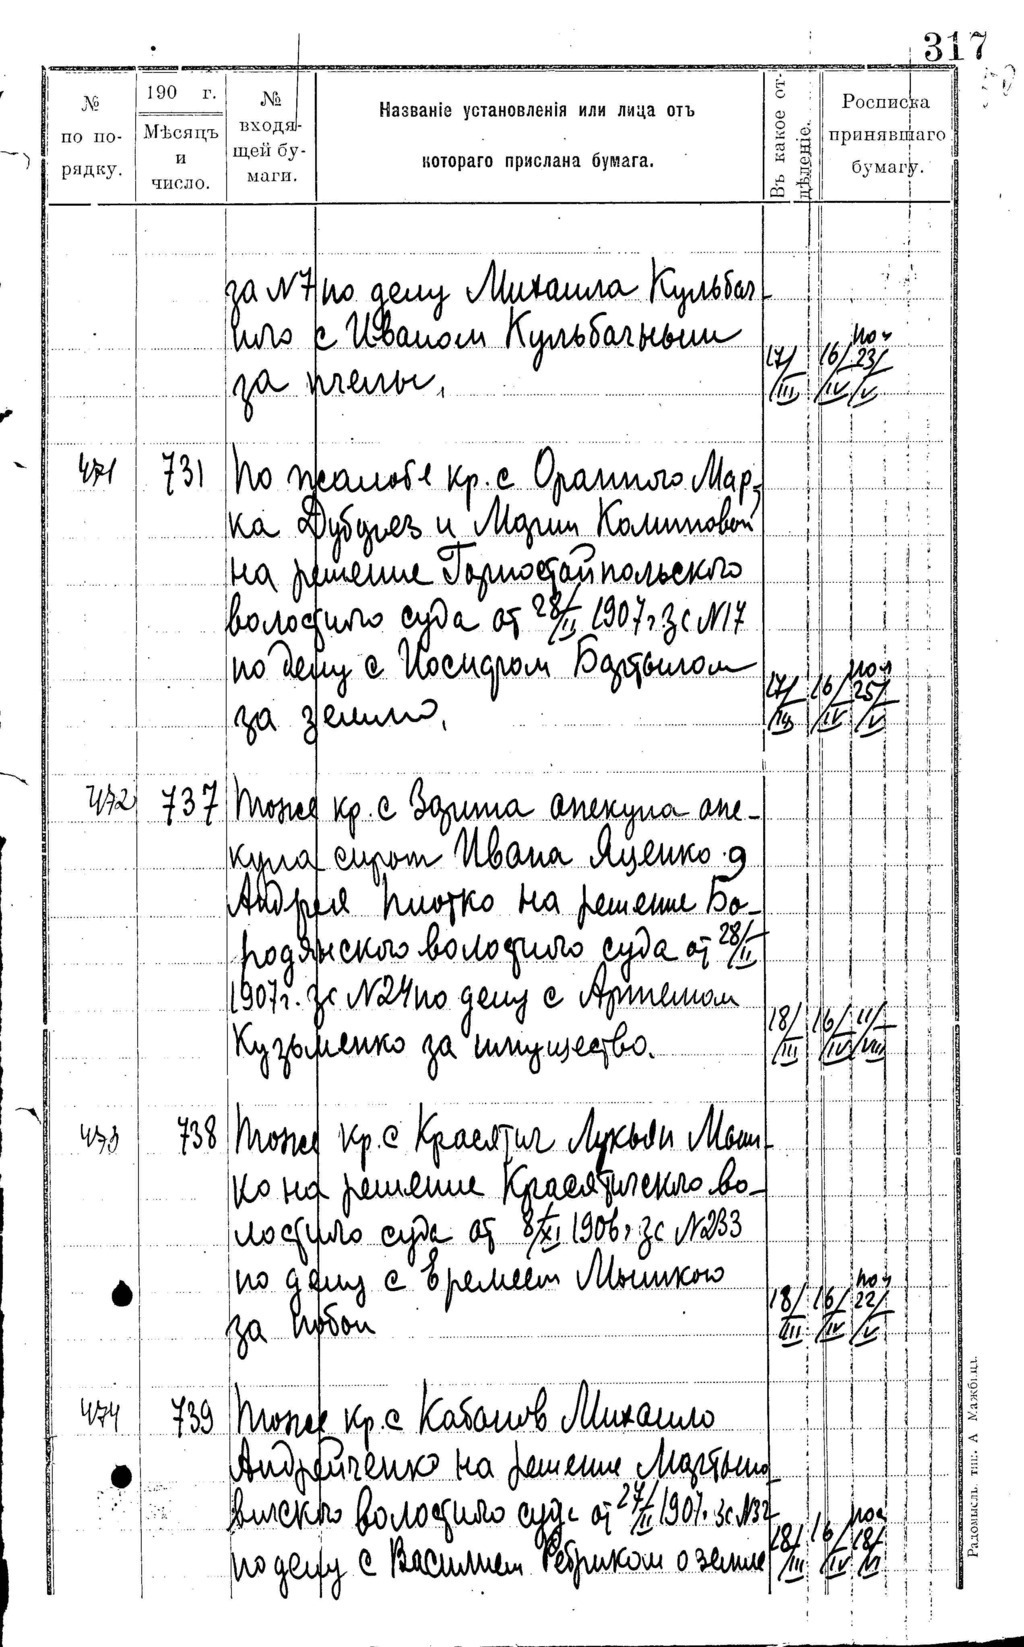 317
№ по порядку.
190 г. Мѣсяцъ и число.
№ входящей бумаги.
Названіе установленія или лица отъ
котораго прислана бумага.
Въ какое отдѣленіе.
Росписка принявшаго бумагу.
за N7 по делу Михаила Кульбач-
ного с Иваном Кульбачным
за пчелы.
17/III 16/IV 23/V
471 731 По жалобе кр. с Оранного Мар-
ка и Марии Калиновой
на решение Горностайпольского
волостного суда от 28/II 1907 г зс N17
по делу с Иосифом
за землю.
17/III 16/IV 25/V
472 737 Тоже кр. с опекуна опе-
куна сирот Ивана Яценко
Андрея на решение Бо-
родянского волостного суда от 28/II
1907 г. зс N24 по делу с Артемом
Кузьменко за имущество.
18/III 16/IV 11/VIII
473 738 Тоже кр. с Красятич Лукьян Мыш-
ко на решение Красятичского во-
лостного суда от 8/XI 1906 г зс N233
по делу с Еремеем Мышкою
за побои
18/III 16/IV 22/V
474 739 Тоже кр. с Кабанов Михаило
Андрейченко на решение Мартыно-
вичского волостного суда от 27/II 1907 г. зс N32
по делу с Василием Ребриком о земле
18/III 16/IV 18/VI
Радомысль. тип. А Мажбицъ.